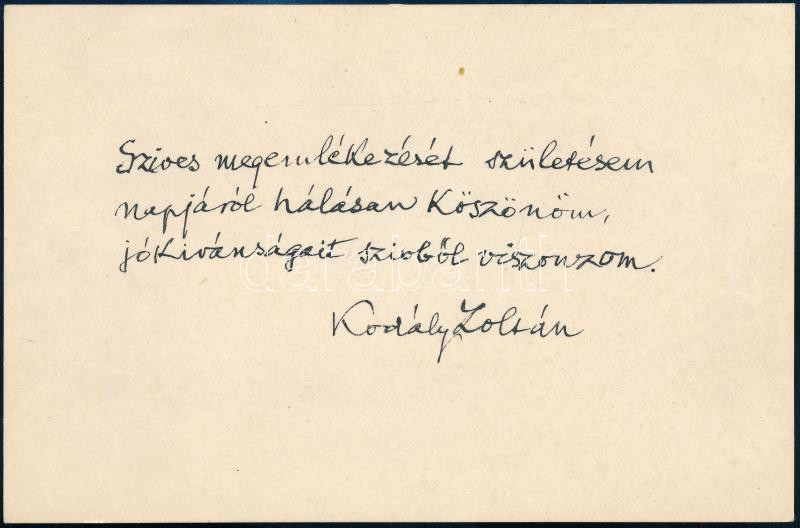 Szives megemlékezését születésem
napjáról hálásan köszönöm,
jókivánságait szivből viszonzom.
Kodály Zoltán
darabanth